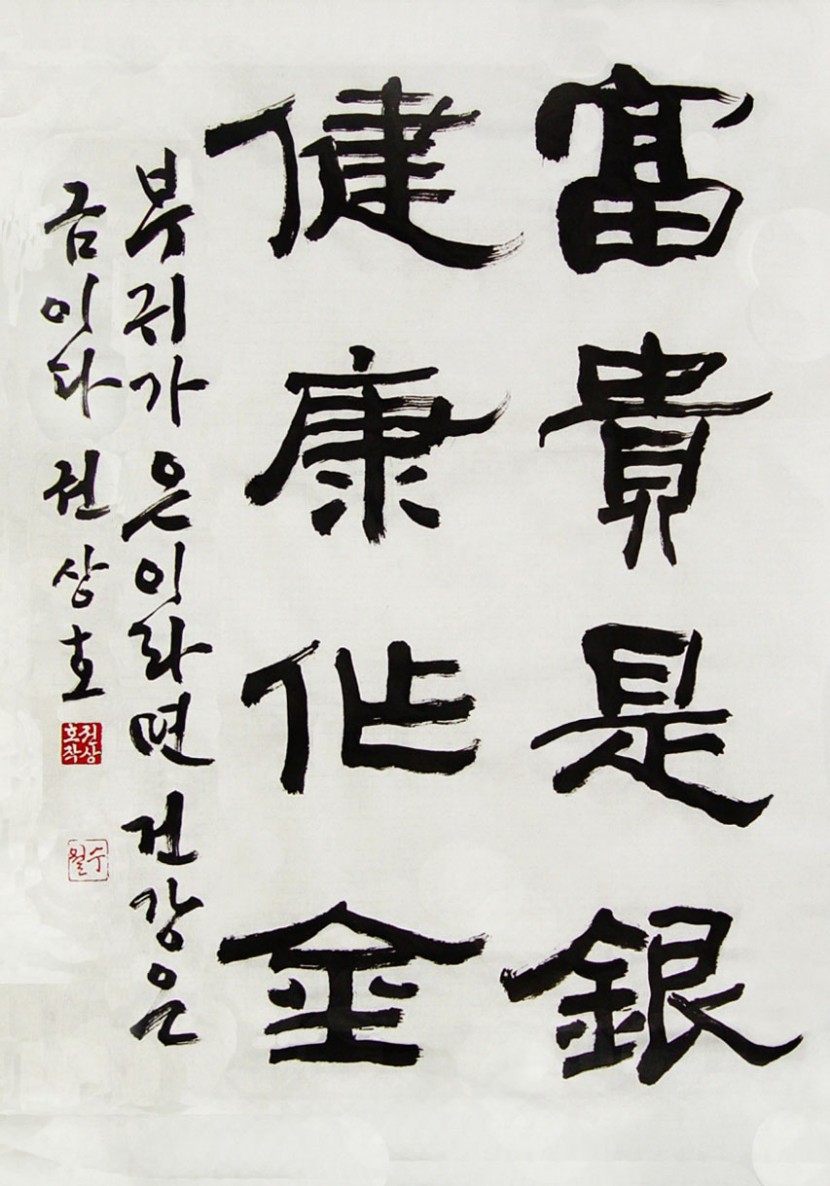 富貴是銀
健康作金
부귀가 은이라면 건강은
금이다 권상호
권상
호작
수월